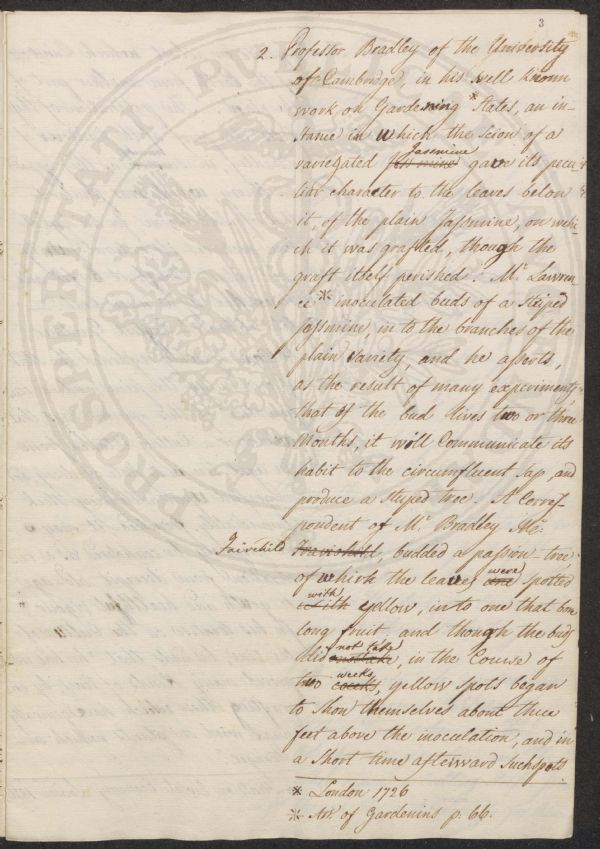 3
2. Professor Bradley of the University
of Cambridge, in his well known
work on Gardening * States, an in-
stance in which the scion of a
Jasmine
variegated gave its pecu
liar character to the leaves below
it, of the plain Jassmine, on whi-
ch it was grafted, though the
graft itself perished. Mr. Lawren-
ce * inoculated buds of a Striped
Jassmine, in to the branches of the
plain variety, and he asserts,
as the result of many experiments,
that if the bud lives two or three
Months, it will Communicate its
habit to the circumfluent Sap, and
produce a striped tree. A Corres-
pondent of Mr. Bradley Mr.
Fairchild, budded a passion-tree
were
of which the leaves are spotted
with
yellow, in to one that bore
long fruit, and though the buds
not take
did, in the Course of
weeks
two, yellow spots began
to show themselves about three
feet above the inoculation, and in
a Short time afterward Such spots
* London 1726
* Art of Gardening p. 66.
PROSPERITATI PUBLICAE